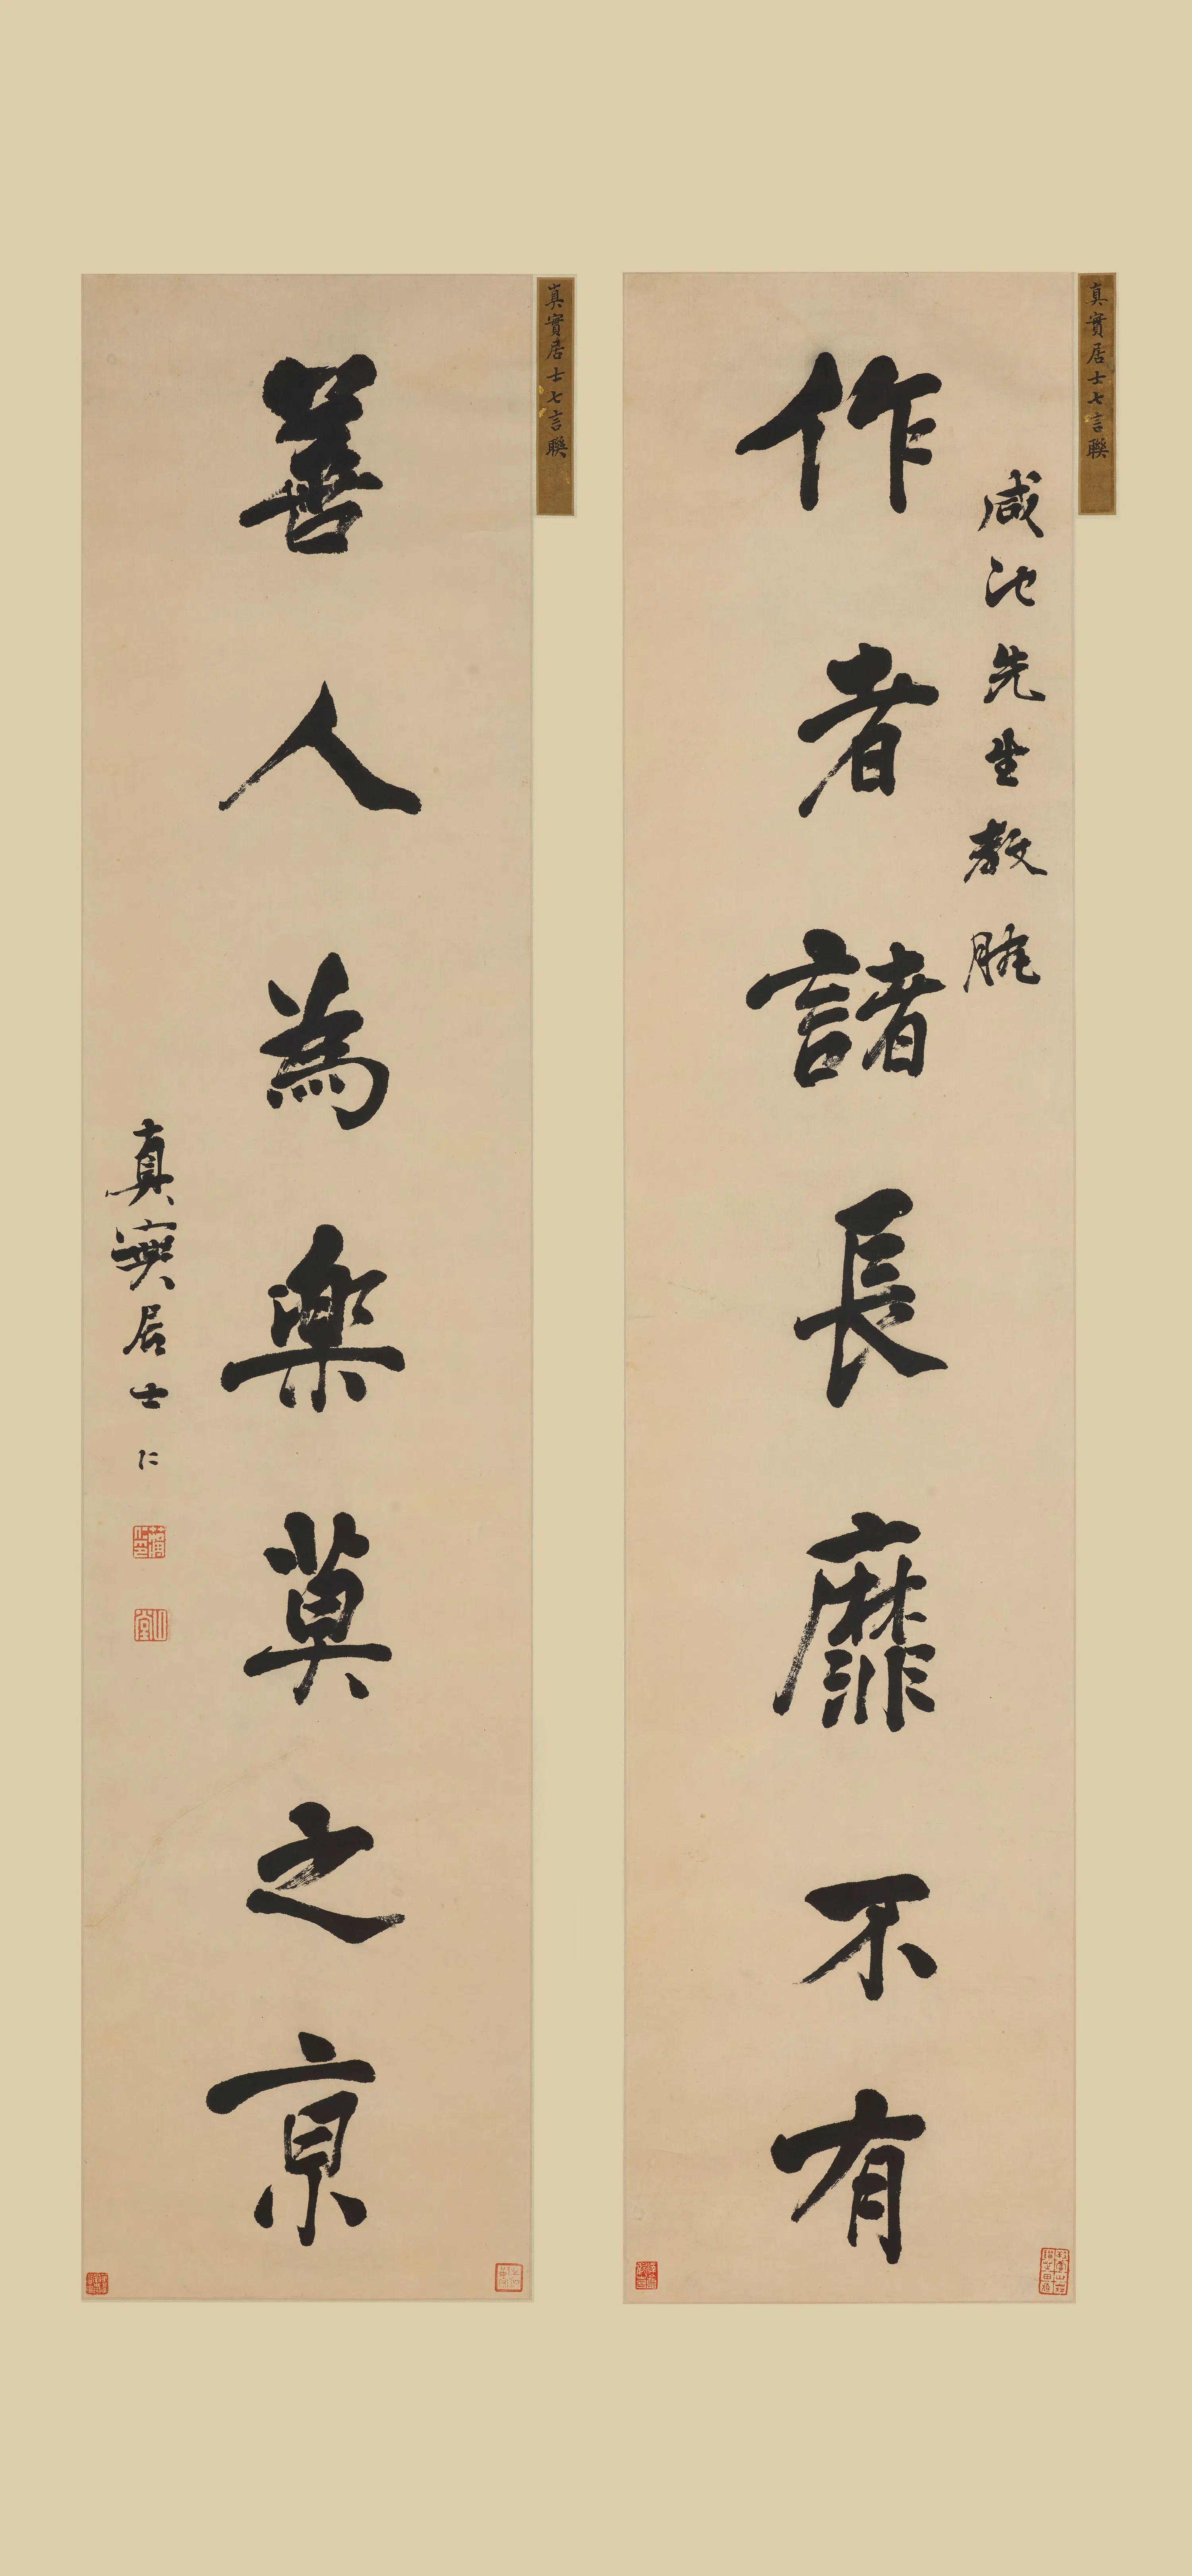 真實居士七言聯
咸池先生教腕
作者諸長靡不有
真實居士七言聯
善人為樂莫之京
真實居士仁